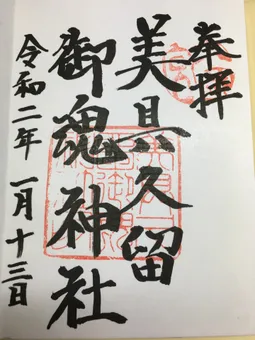 奉拝
美具久留
御魂神社
令和二年一月十三日